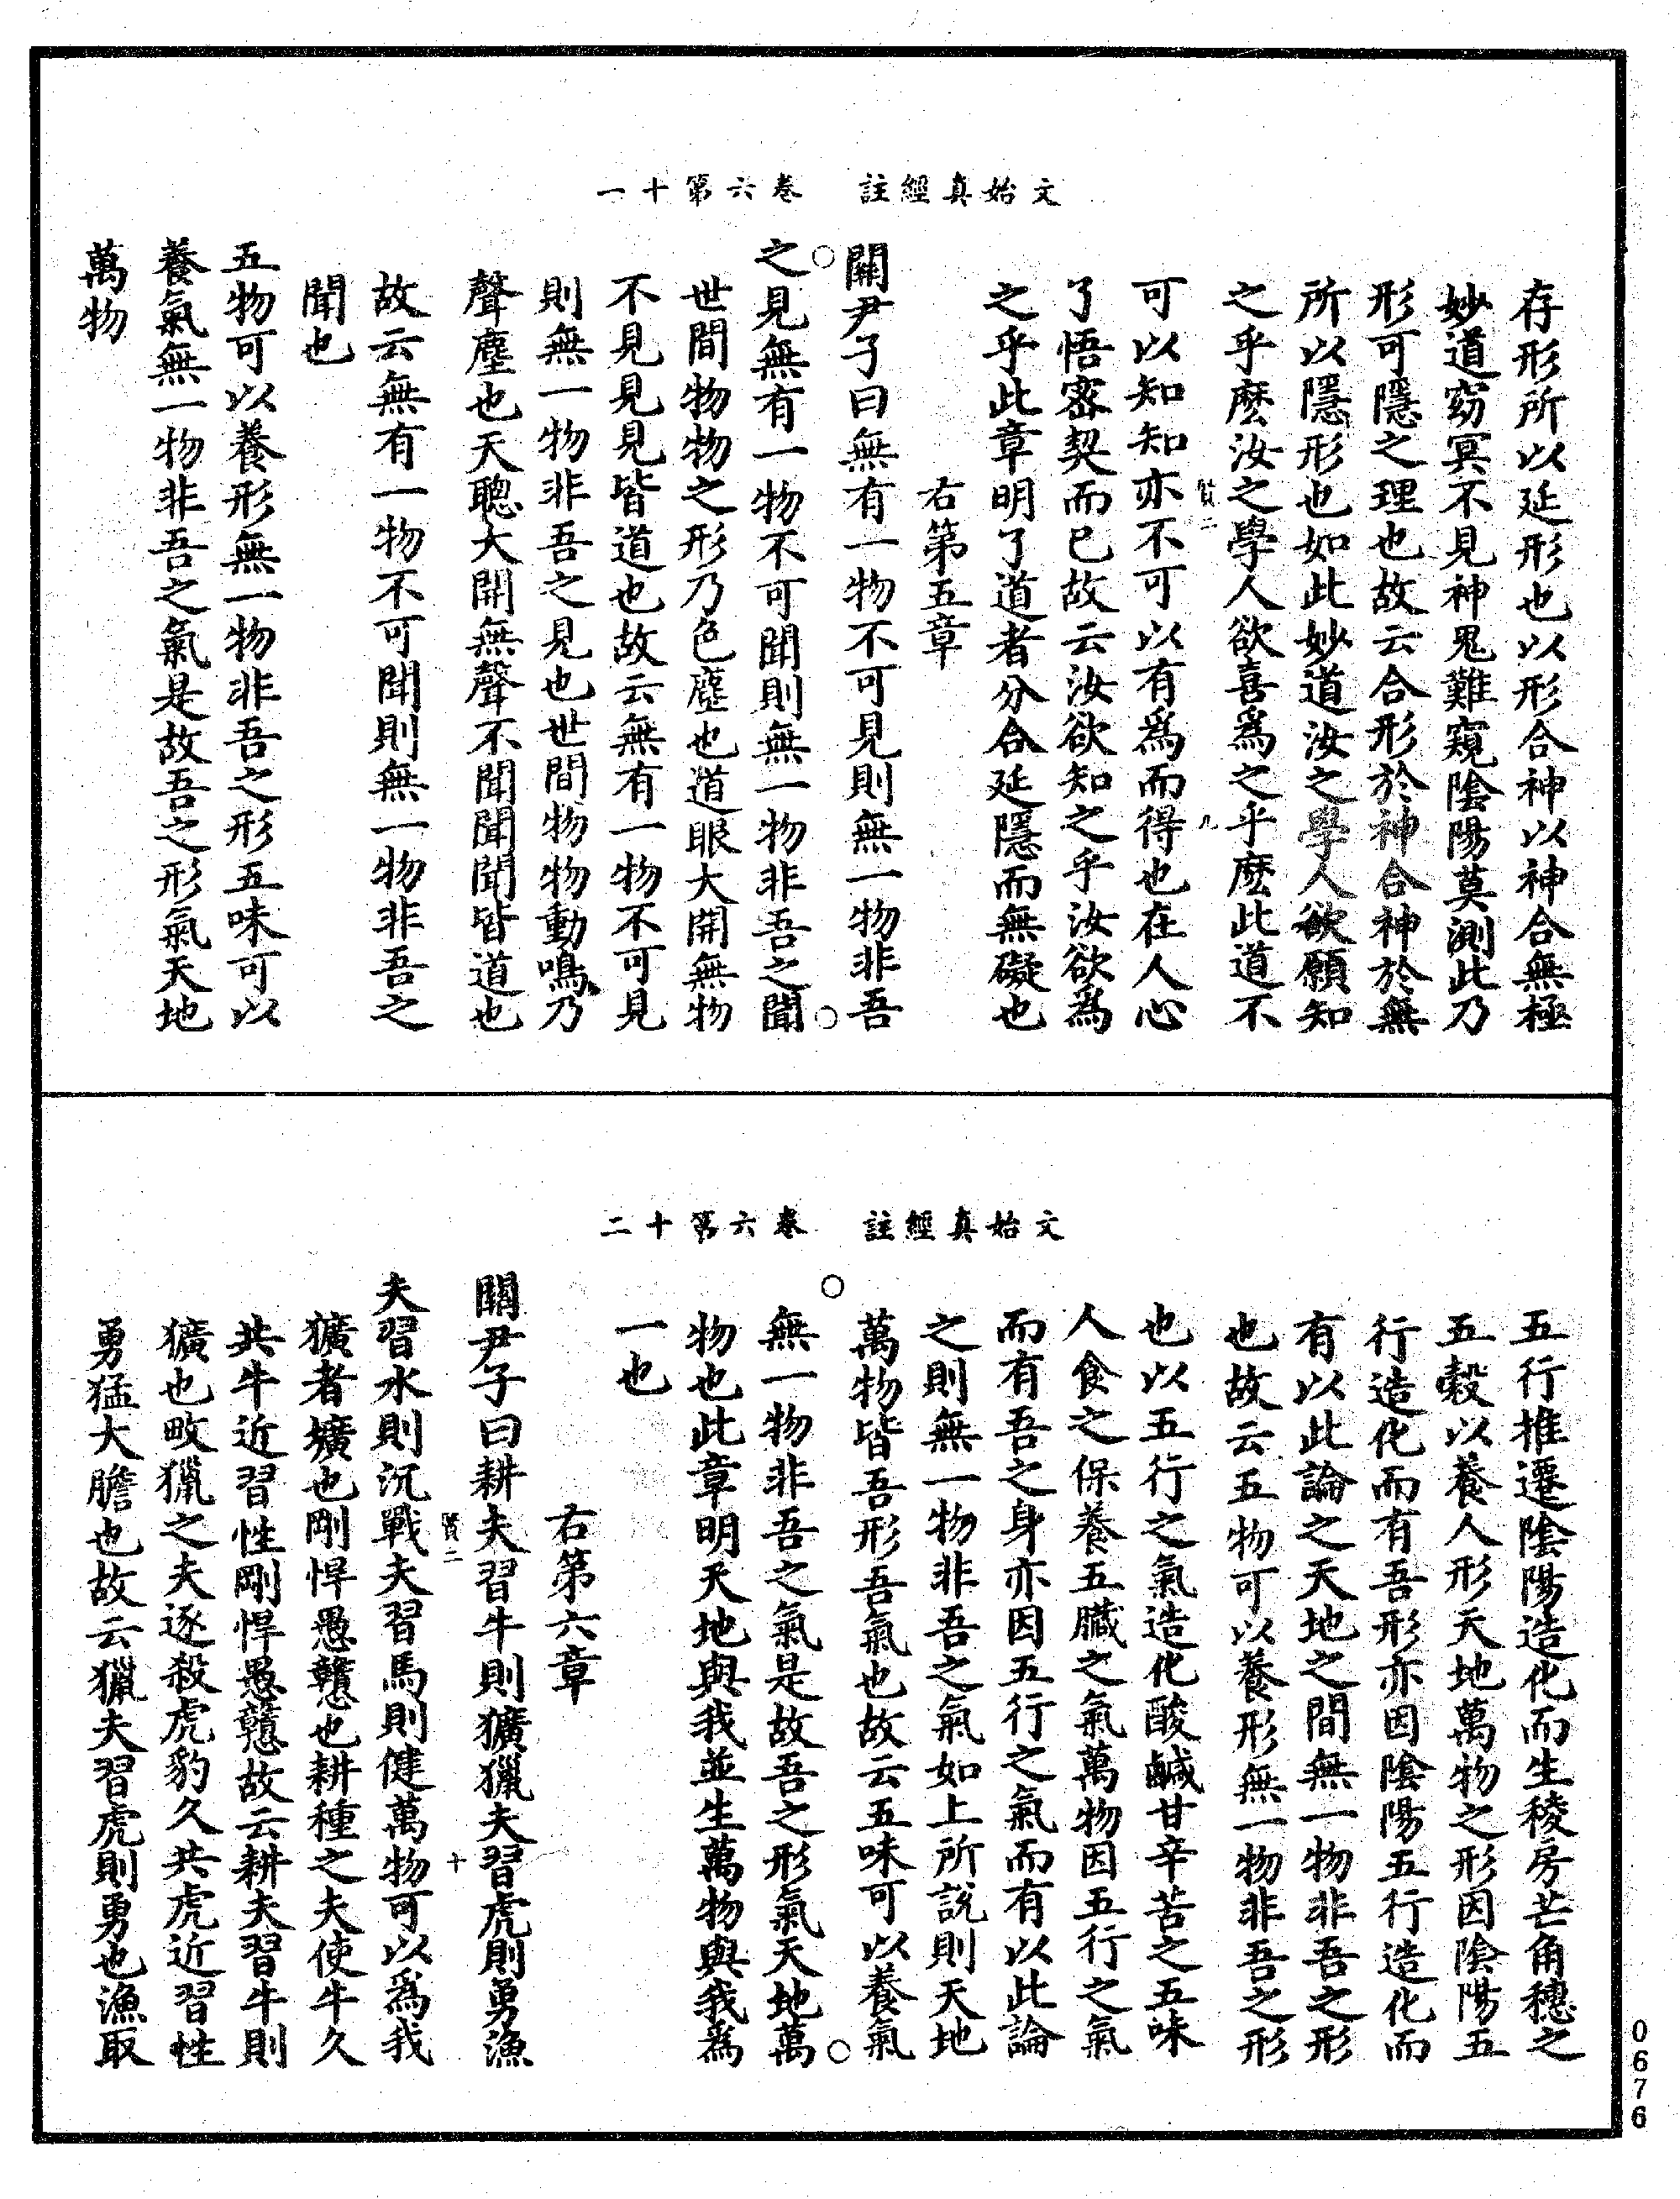 文始真經註　卷六第十一
存形所以延形也以形合神以神合無極
妙道窈冥不見神鬼難窺陰陽莫測此乃
形可隱之理也故云合形於神合神於無
所以隱形也如此妙道汝之學人欲願知
之乎麽汝之學人欲喜爲之乎麽此道不
賢二　九
可以知知亦不可以有爲而得也在人心
了悟密契而已故云汝欲知之乎汝欲爲
之乎此章明了道者分合延隱而無礙也
右第五章
關尹子曰無有一物不可見則無一物非吾
之見無有一物不可聞則無一物非吾之聞
世間物物之形乃色塵也道眼大開無物
不見見見皆道也故云無有一物不可見
則無一物非吾之見也世間物物動鳴乃
聲塵也天聰大開無聲不聞聞聞皆道也
故云無有一物不可聞則無一物非吾之
聞也
五物可以養形無一物非吾之形五味可以
養氣無一物非吾之氣是故吾之形氣天地
萬物
文始真經註　卷六第十二
五行推遷陰陽造化而生稜房芒角穗之
五穀以養人形天地萬物之形因陰陽五
行造化而有吾形亦因陰陽五行造化而
有以此論之天地之間無一物非吾之形
也故云五物可以養形無一物非吾之形
也以五行之氣造化酸鹹甘辛苦之五味
人食之保養五臟之氣萬物因五行之氣
而有吾之身亦因五行之氣而有以此論
之則無一物非吾之氣如上所說則天地
萬物皆吾形吾氣也故云五味可以養氣
無一物非吾之氣是故吾之形氣天地萬
物也此章明天地與我並生萬物與我爲
一也
右第六章
關尹子曰耕夫習牛則獷獵夫習虎則勇漁
賢二　十
夫習水則沉戰夫習馬則健萬物可以爲我
獷者壙也剛悍愚戇也耕種之夫使牛久
共牛近習性剛悍愚戇故云耕夫習牛則
獷也畋獵之夫逐殺虎豹久共虎近習性
勇猛大膽也故云獵夫習虎則勇也漁取
0676